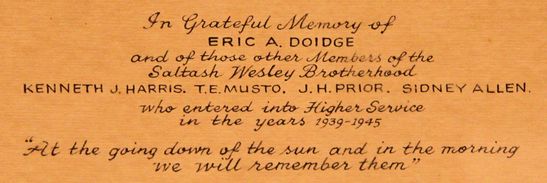 In Grateful Memory of
ERIC A. DOIDGE
and of those other Members of the
Saltash Wesley Brotherhood
KENNETH J. HARRIS. T.E. MUSTO. J.H. PRIOR. SIDNEY ALLEN.
who entered into Higher Service
in the years 1939-1945
"At the going down of the sun and in the morning
we will remember them"